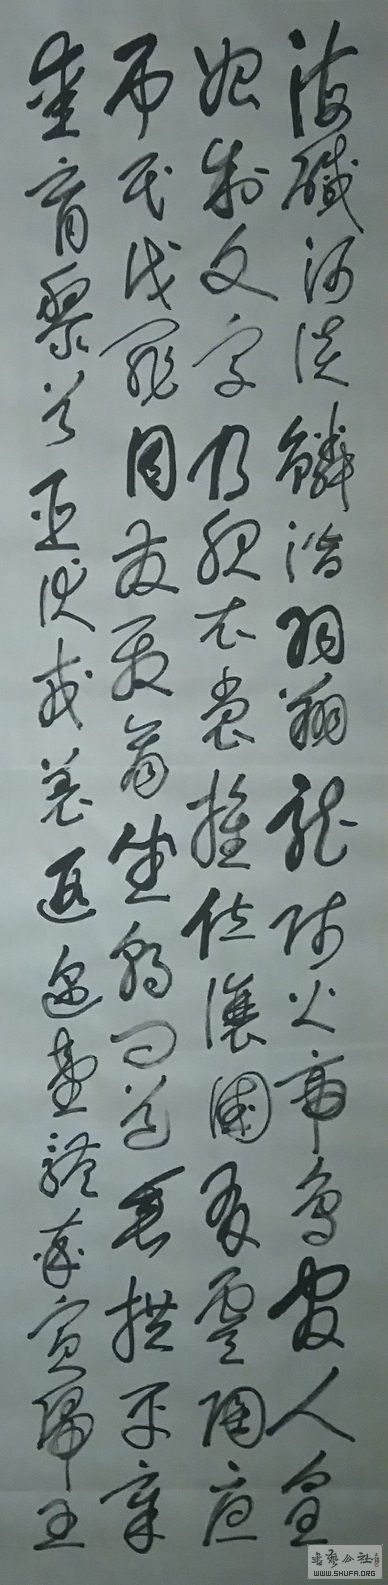 海鹹河淡鱗潛羽翔龍師火帝鳥官人皇
始制文字乃服衣裳推位讓國有虞陶唐
弔民伐罪周發殷商坐朝問道垂拱平章
愛育黎首臣伏戎羌遐邇壹體率賓歸王
書藝公社
WWW.SHUFA.ORG